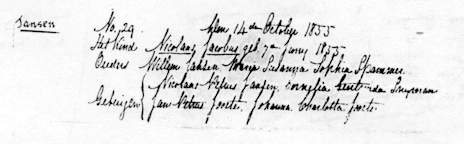 Jansen
No. 29. den 14 de October 1855
Het Kind Nicolaas Jacobus geb. 7 de Juny 1855
Ouders Willem Jansen Maria Susanna Sophia
Getuigen Nicolaas Petrus Jansen, Cornelia
Jan Petrus Johanna Charlotta